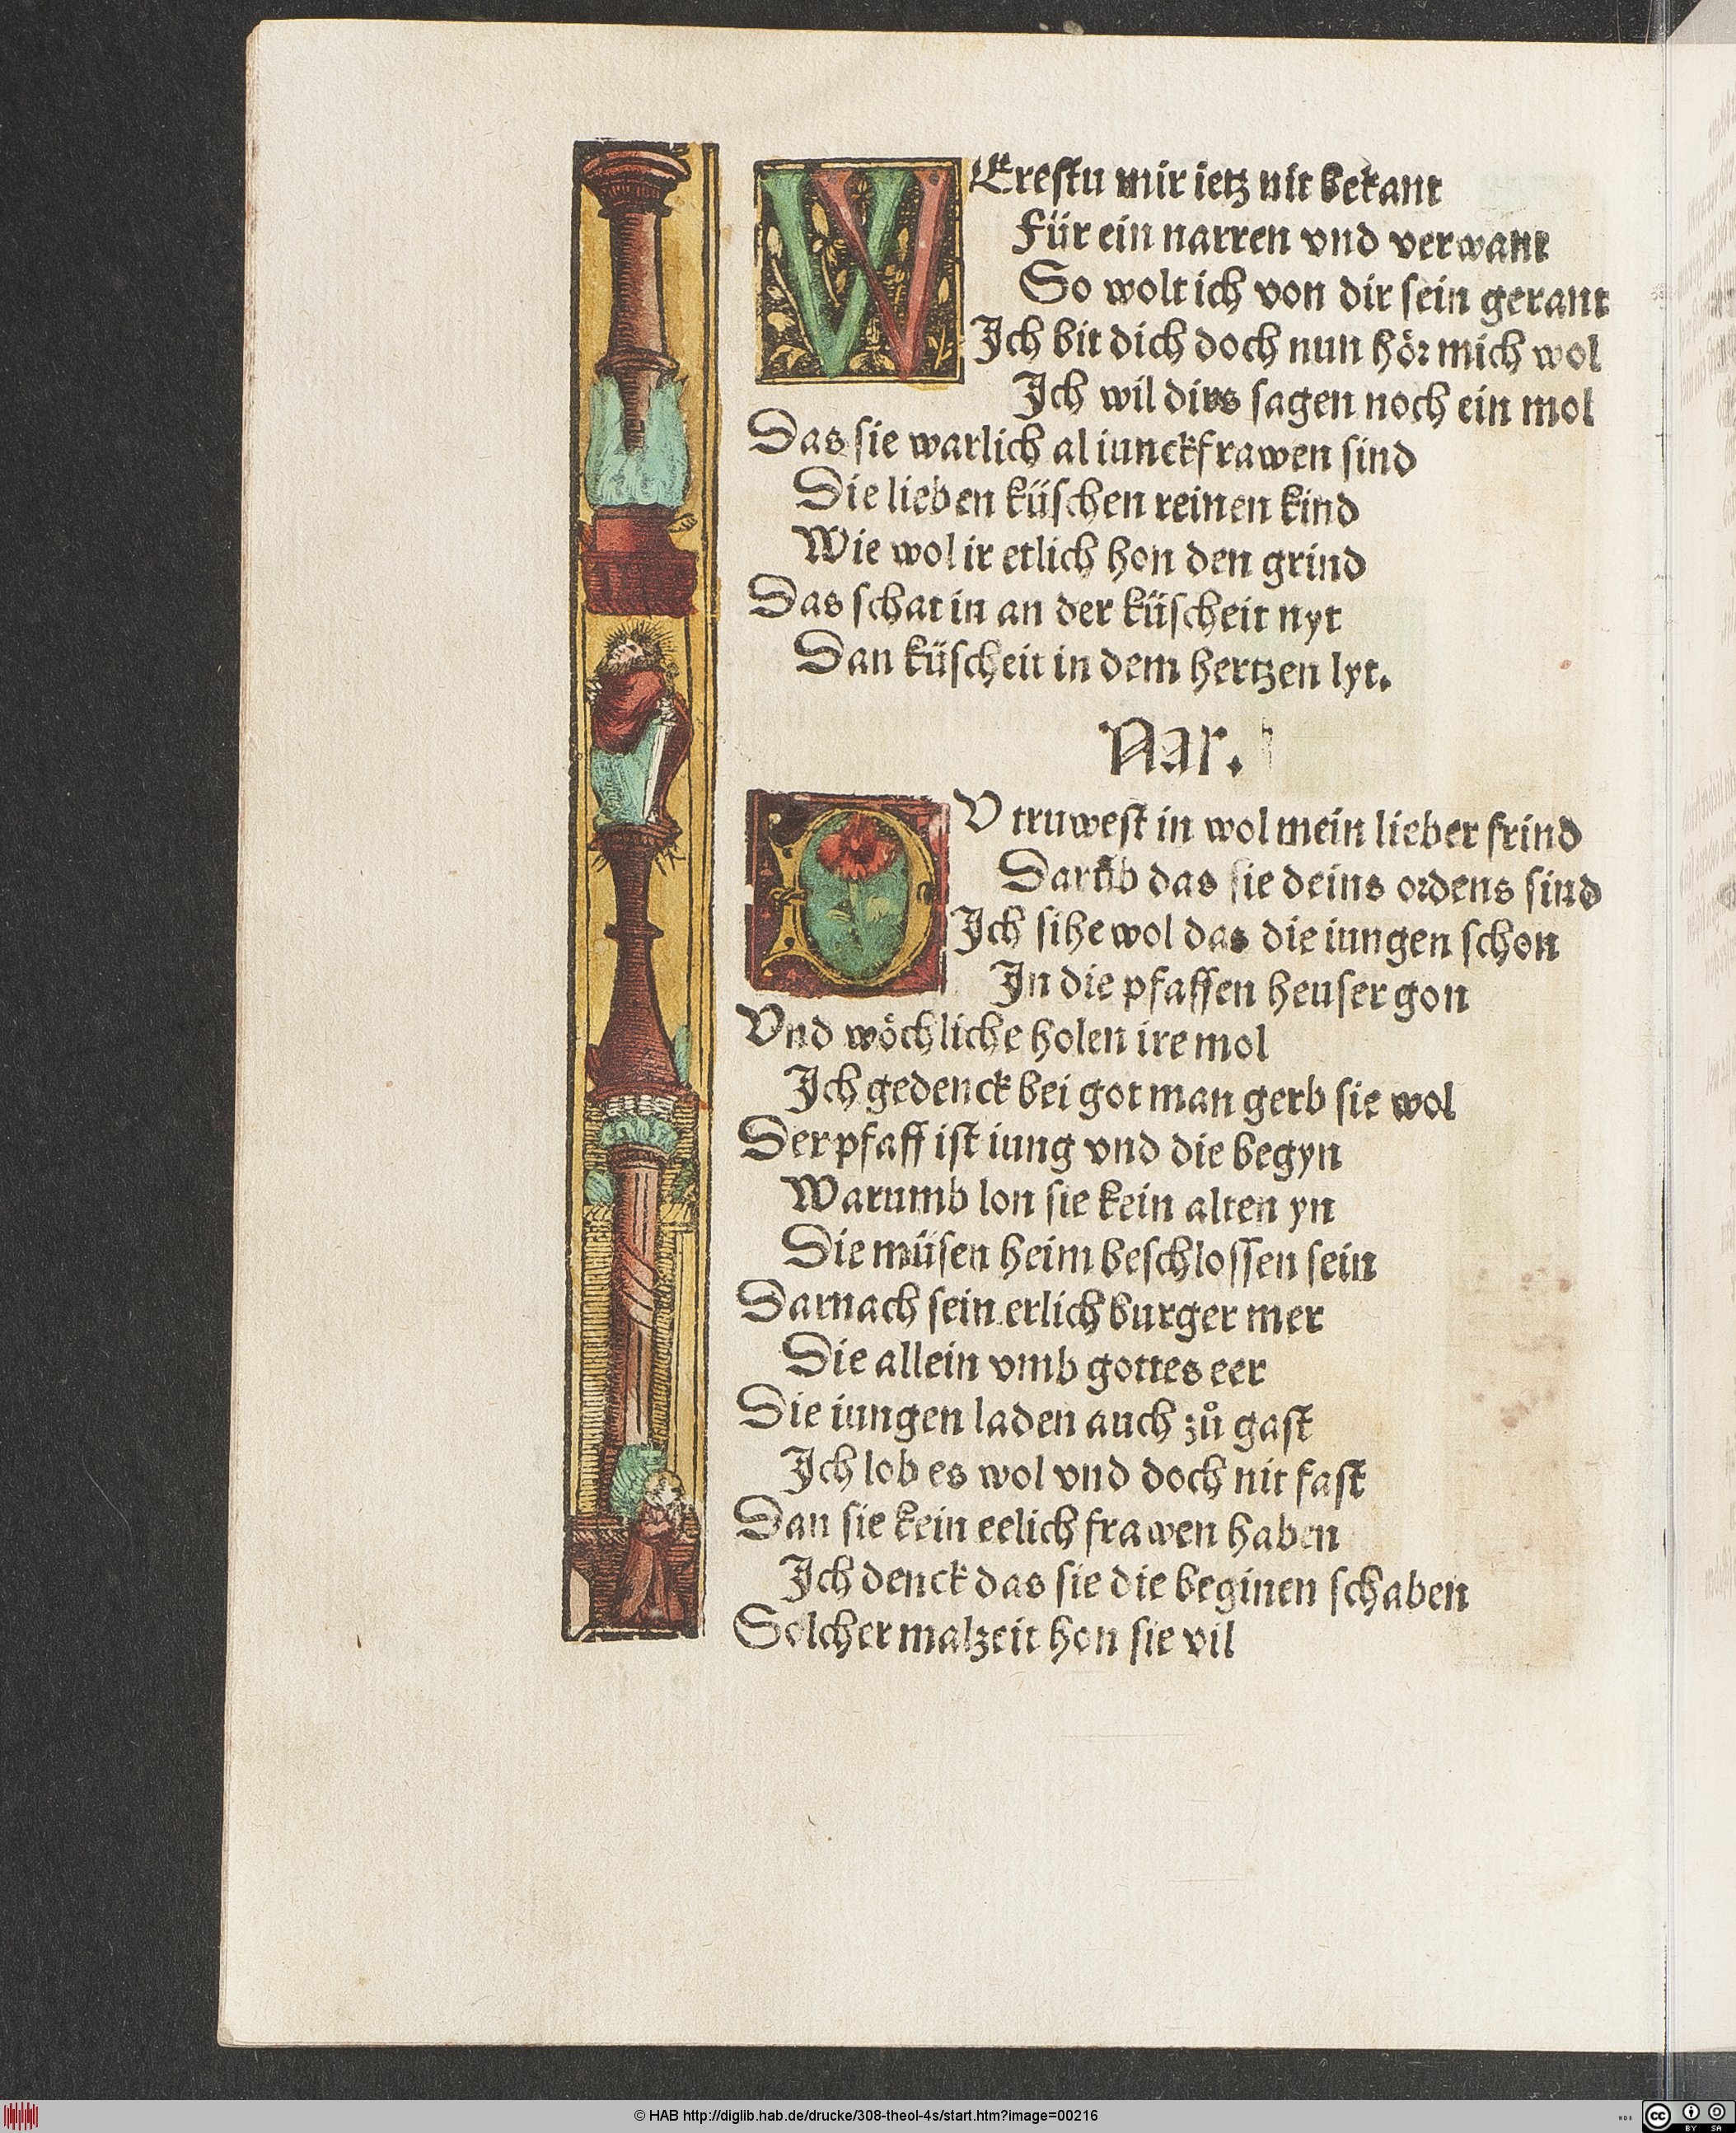 WErestu mir ietz nit bekant
Für ein narren vnd verwant
So wolt ich von dir sein gerant
Ich bit dich doch nun hör mich wol
Ich wil dirs sagen noch ein mol
Das sie warlich al iunckfrawen sind
Die lieben küschen reinen kind
Wie wol ir etlich hon den grind
Das schat in an der küscheit nyt
Dan küscheit in dem hertzen lyt.
Nar.
DV truwest in wol mein lieber frind
Darūb das sie deins ordens sind
Ich sihe wol das die iungen schon
In die pfaffen heuser gon
Vnd wöchliche holen ire mol
Ich gedenck bei got man gerb sie wol
Der pfaff ist iung vnd die begyn
Warumb lon sie kein alten yn
Die müsen heim beschlossen sein
Darnach sein erlich burger mer
Die allein vmb gottes eer
Die iungen laden auch zů gast
Ich lob es wol vnd doch nit fast
Dan sie kein eelich frawen haben
Ich denck das sie die beginen schaben
Solcher malzeit hon sie vil
© HAB http://diglib.hab.de/drucke/308-theol-4s/start.htm?image=00216
cc BY SA